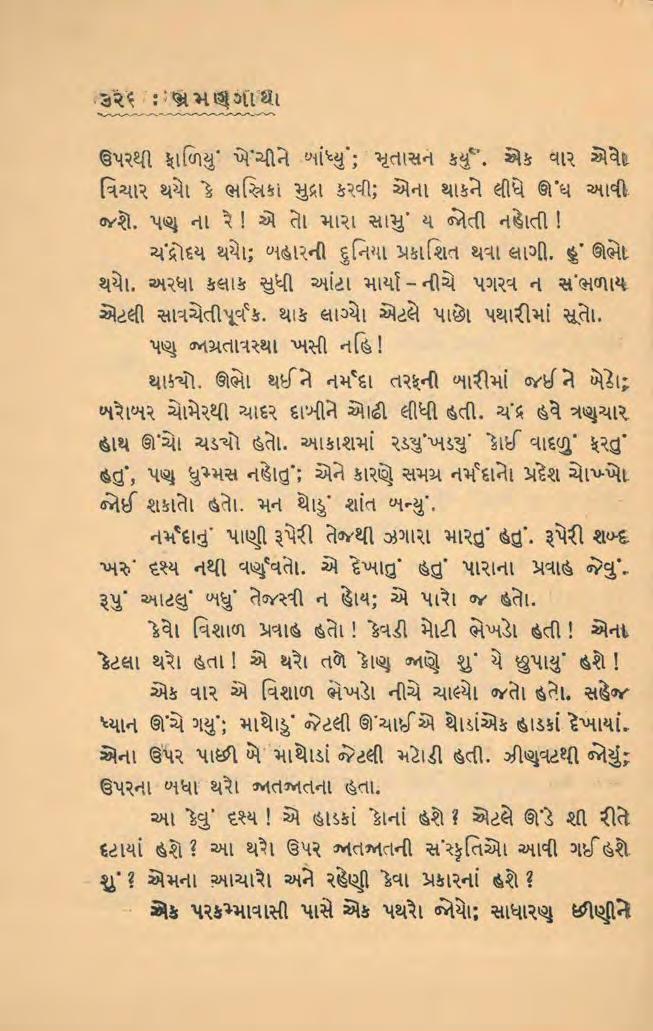 ૩૨૬ : ભ્રમણગાથા
ઉપરથી ફાળિયું ખેંચીને બાંધ્યું; મૃતાસન કર્યું. એક વાર એવો
વિચાર થયો કે ભસ્ત્રિકા મુદ્રા કરવી; એના થાકને લીધે ઊંઘ આવી
જશે. પણ ના રે! એ તો મારા સામું ય જોતી નહોતી!
ચંદ્રોદય થયો; બહારની દુનિયા પ્રકાશિત થવા લાગી. હું ઊભો
થયો. અરધા કલાક સુધી આંટા માર્યા – નીચે પગરવ ન સંભળાય
એટલી સાવચેતીપૂર્વક. થાક લાગ્યો એટલે પાછો પથારીમાં સૂતો.
પણ જાગ્રતાવસ્થા ખસી નહિ!
થાક્યો. ઊભો થઈને નર્મદા તરફની બારીમાં જઈને બેઠો;
બરોબર ચોમેરથી ચાદર દાબીને ઓઢી લીધી હતી. ચંદ્ર હવે ત્રણચાર
હાથ ઊંચો ચડચો હતો. આકાશમાં રડ્યુંખડ્યું કોઈ વાદળું ફરતું
હતું, પણ ધુમ્મસ નહોતું; એને કારણે સમગ્ર નર્મદાનો પ્રદેશ ચોખ્ખો
જોઈ શકાતો હતો. મન થોડું શાંત બન્યું.
નર્મદાનું પાણી રૂપેરી તેજથી ઝગારા મારતું હતું. રૂપેરી શબ્દ
ખરું દૃશ્ય નથી વર્ણવતો. એ દેખાતું હતું પારાના પ્રવાહ જેવું.
રૂપું આટલું બધું તેજસ્વી ન હોય; એ પારો જ હતો.
કેવો વિશાળ પ્રવાહ હતો! કેવડી મોટી ભેખડો હતી! એના
કેટલા થરો હતા! એ થરો તળે કોણ જાણે શું યે છુપાયું હશે!
એક વાર એ વિશાળ ભેખડો નીચે ચાલ્યો જતો હતો. સહેજ
ધ્યાન ઊંચે ગયું; માથોડું જેટલી ઊંચાઈએ થોડાંએક હાડકાં દેખાયાં.
એના ઉપર પાછી બે માથોડાં જેટલી મટોડી હતી. ઝીણવટથી જોયું;
ઉપરના બધા થરો જાતજાતના હતા.
આ કેવું દૃશ્ય! એ હાડકાં કોનાં હશે? એટલે ઊંડે શી રીતે
દટાયાં હશે? આ થરો ઉપર જાતજાતની સંસ્કૃતિઓ આવી ગઈ હશે
શું? એમના આચારો અને રહેણી કેવા પ્રકારનાં હશે?
એક પરકમ્માવાસી પાસે એક પથરો જોયો; સાધારણ છીણીને